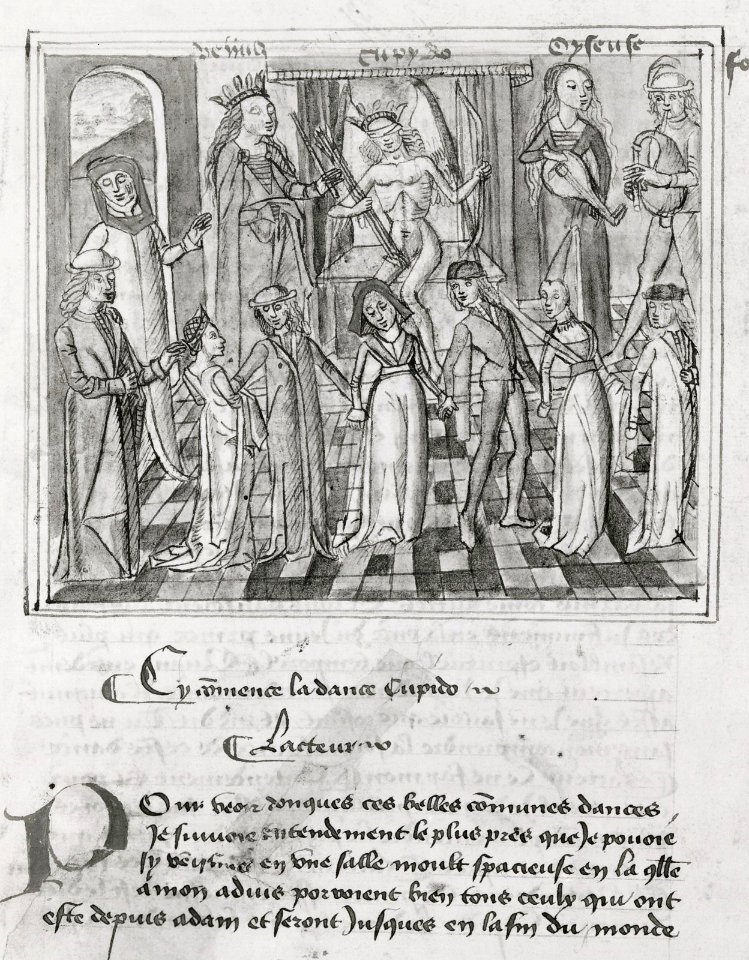 venus cupydo oyseuse fo
Cy cõmence la dance Cupido
Lacteur
Pour veoir donques ces belles cõmunes dances
Je suivoie entendement le plus pres que Je povoie
sy veismes en vne salle moult spacieuse en la qlle
a mon aduis porroient bien tous ceulx qui ont
este depuis adam et seront Jusques en la fin du monde